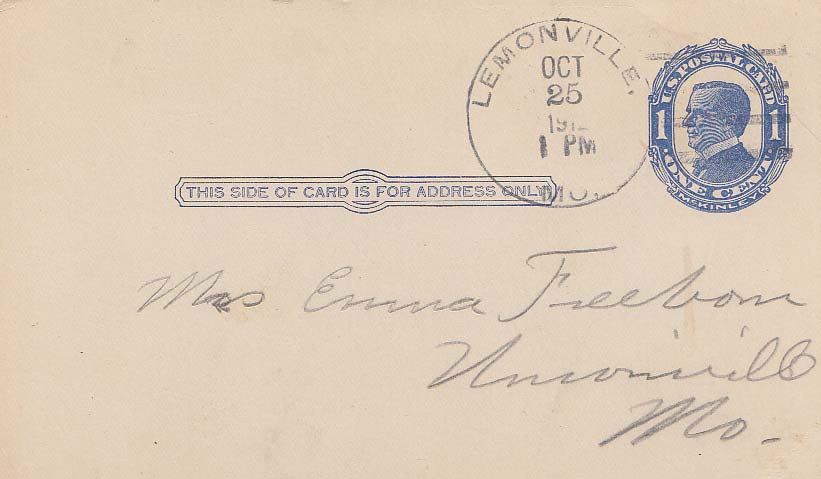 LEMONVILLE,
OCT
25
1 PM
MO.
U.S. POSTAL CARD
1 1
ONE CENT
McKINLEY
THIS SIDE OF CARD IS FOR ADDRESS ONLY
Mrs Emma Freeborn
Unionville
Mo.